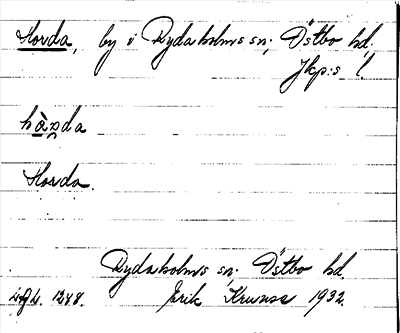 Horda, by i Rydaholms sn; Östbo hd,
Jkp:s l
Horda.
Rydaholms sn; Östbo hd
1248. Erik Kruuse 1932.